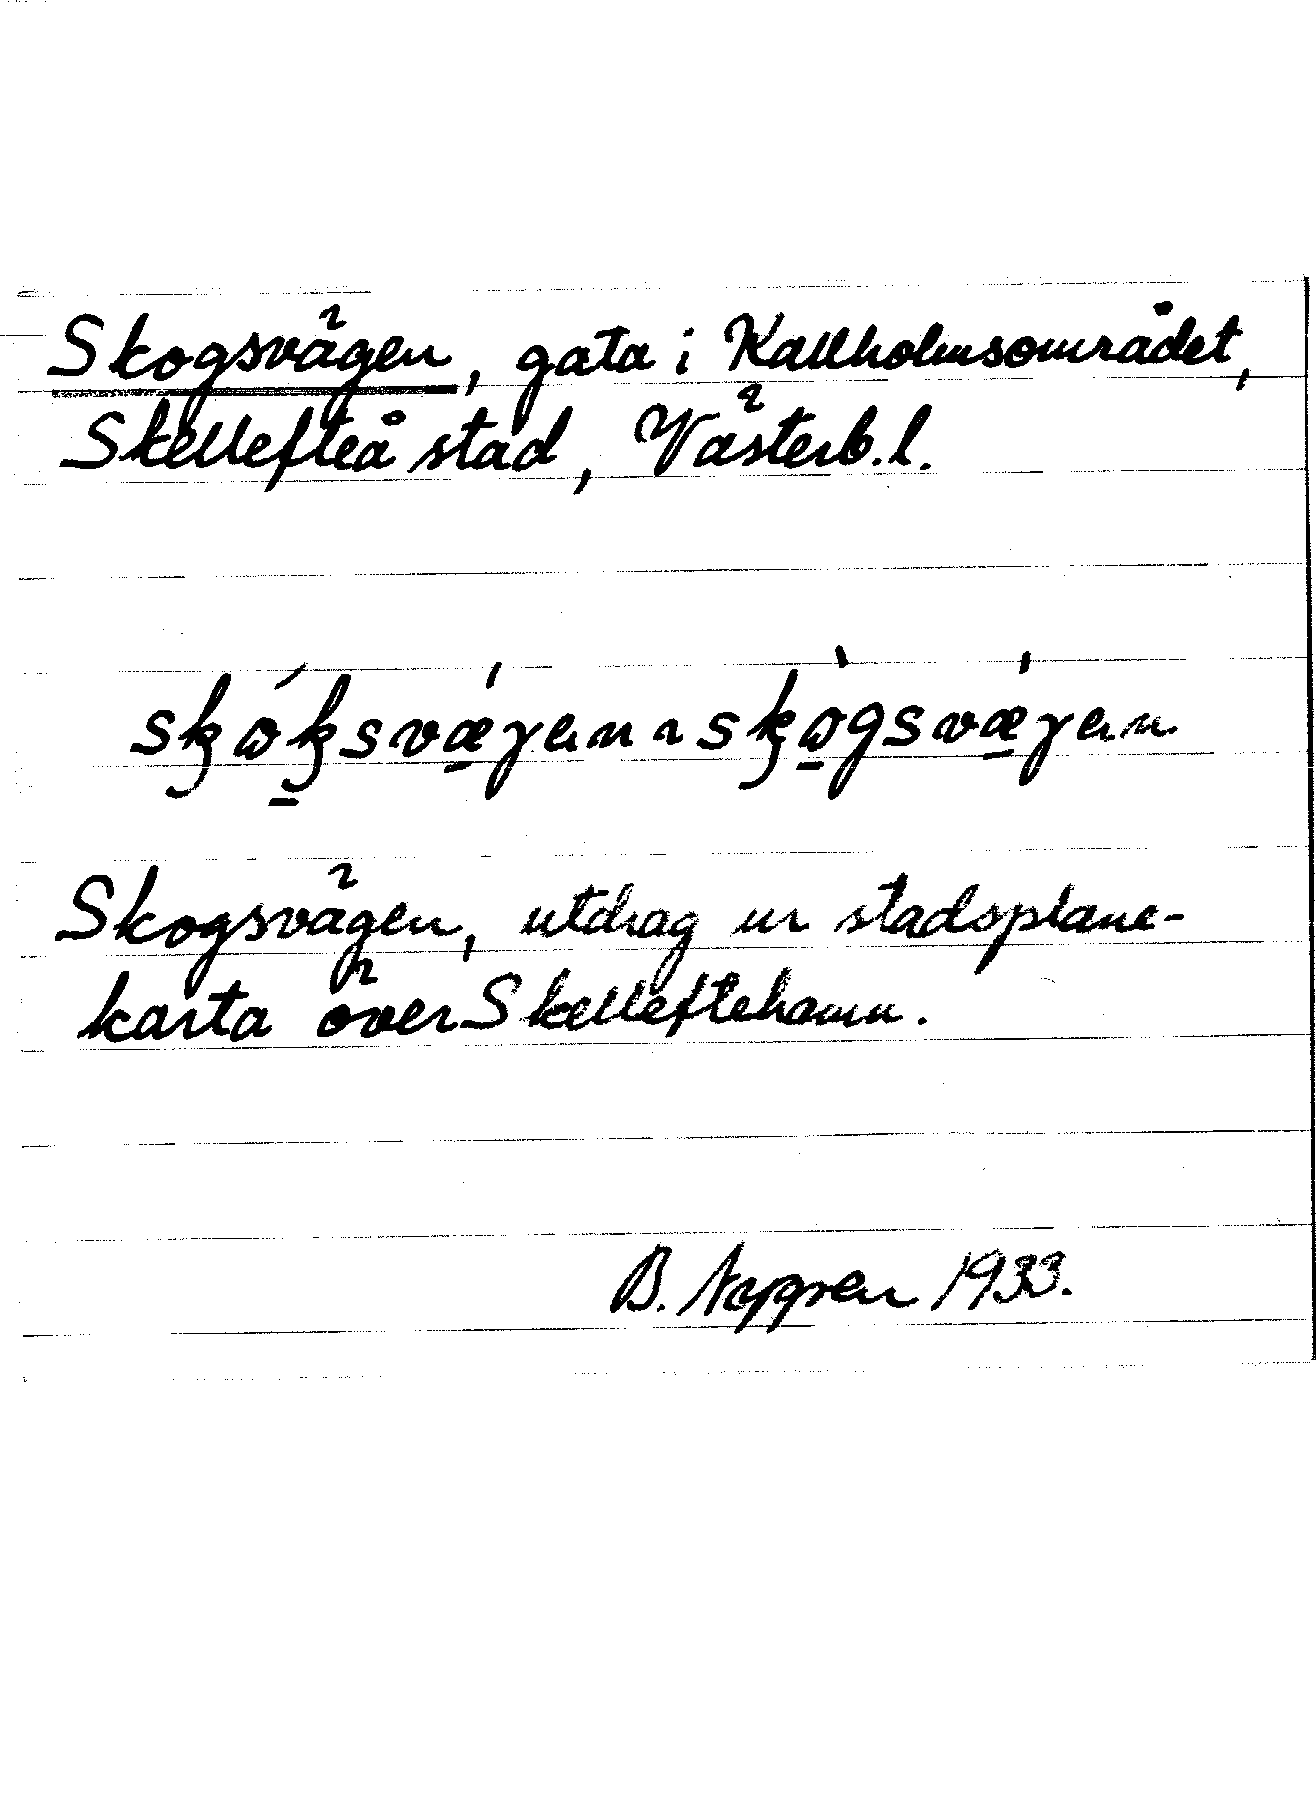 Skogsvägen, gata i Kallholmsområdet,
Skellefteå stad, Västerb.l.
skóksvǽgen ~ skògsvǽgen
Skogsvägen, utdrag ur stadsplane-
karta över Skelleftehamn.
B. Nygren 1933.